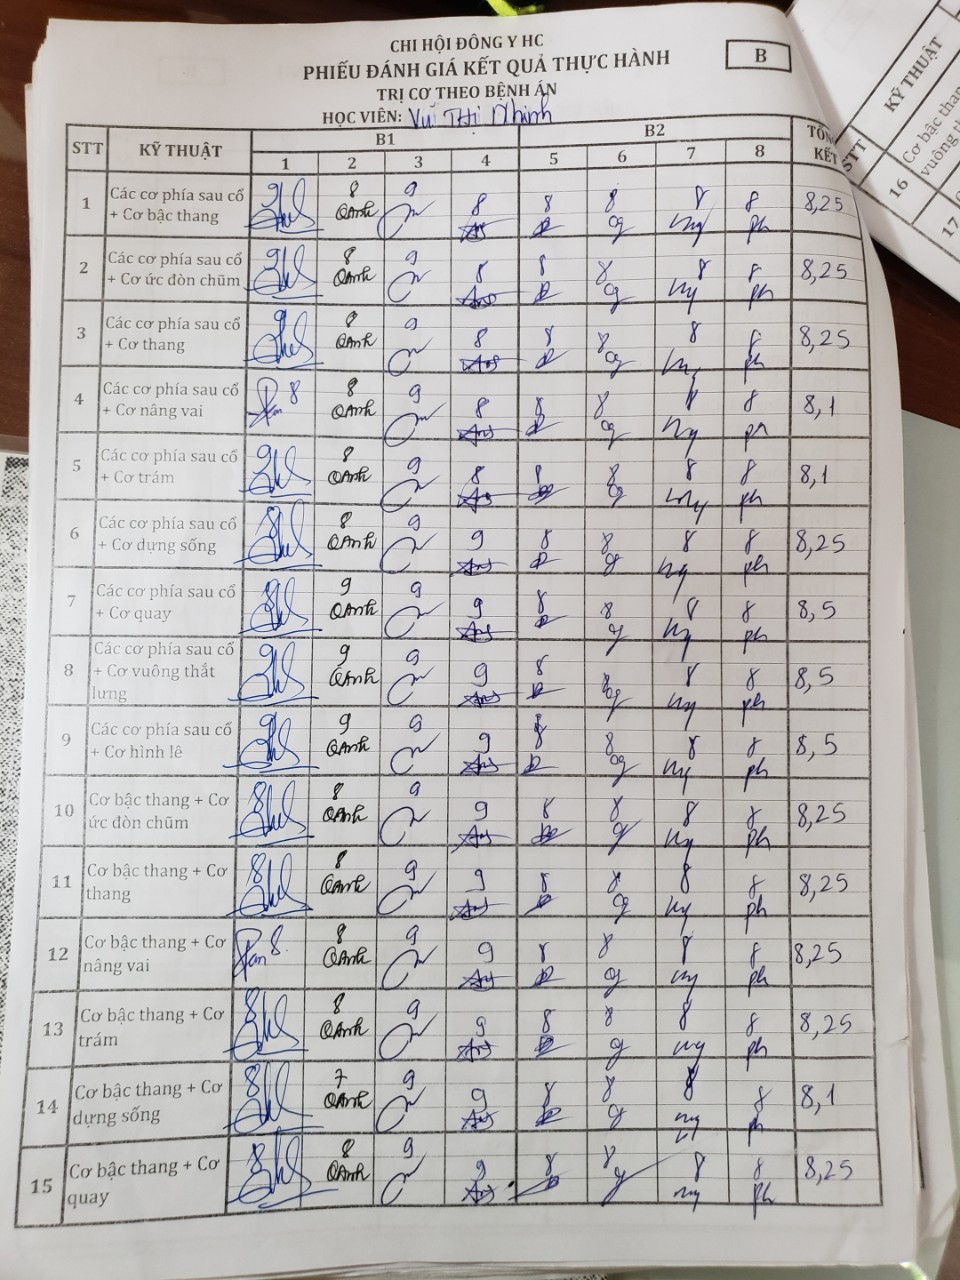 CHI HỘI ĐÔNG Y HC
PHIẾU ĐÁNH GIÁ KẾT QUẢ THỰC HÀNH
B
TRỊ CƠ THEO BỆNH ÁN
HỌC VIÊN: Vũ Thị Nhinh
STT KỸ THUẬT B1 B2 TỔNG KẾT
1 2 3 4 5 6 7 8
1 Các cơ phía sau cổ + Cơ bậc thang 9 8 QAnh 9 8 8 8 8 8 ph 8,25
2 Các cơ phía sau cổ + Cơ ức đòn chũm 9 8 QAnh 9 8 8 8 8 8 ph 8,25
3 Các cơ phía sau cổ + Cơ thang 9 8 QAnh 9 8 8 8 8 8 ph 8,25
4 Các cơ phía sau cổ + Cơ nâng vai 8 8 QAnh 9 8 8 8 8 8 ph 8,1
5 Các cơ phía sau cổ + Cơ trám 9 8 QAnh 9 8 8 8 8 8 ph 8,1
6 Các cơ phía sau cổ + Cơ dựng sống 8 8 QAnh 9 9 8 8 8 8 ph 8,25
7 Các cơ phía sau cổ + Cơ quay 9 QAnh 9 9 8 8 8 8 ph 8,5
8 Các cơ phía sau cổ + Cơ vuông thắt lưng 9 9 QAnh 9 9 8 8 8 8 ph 8,5
9 Các cơ phía sau cổ + Cơ hình lê 9 9 QAnh 9 9 8 8 8 8 ph 8,5
10 Cơ bậc thang + Cơ ức đòn chũm 8 8 QAnh 9 9 8 8 8 8 ph 8,25
11 Cơ bậc thang + Cơ thang 8 8 QAnh 9 9 8 8 8 8 ph 8,25
12 Cơ bậc thang + Cơ nâng vai 8 8 QAnh 9 9 8 8 8 8 ph 8,25
13 Cơ bậc thang + Cơ trám 8 8 QAnh 9 9 8 8 8 8 ph 8,25
14 Cơ bậc thang + Cơ dựng sống 8 7 QAnh 9 9 8 8 8 8 ph 8,1
15 Cơ bậc thang + Cơ quay 8 8 QAnh 9 9 8 8 8 8 ph 8,25
STT KỸ THUẬT
16 Cơ bậc
vuông
17